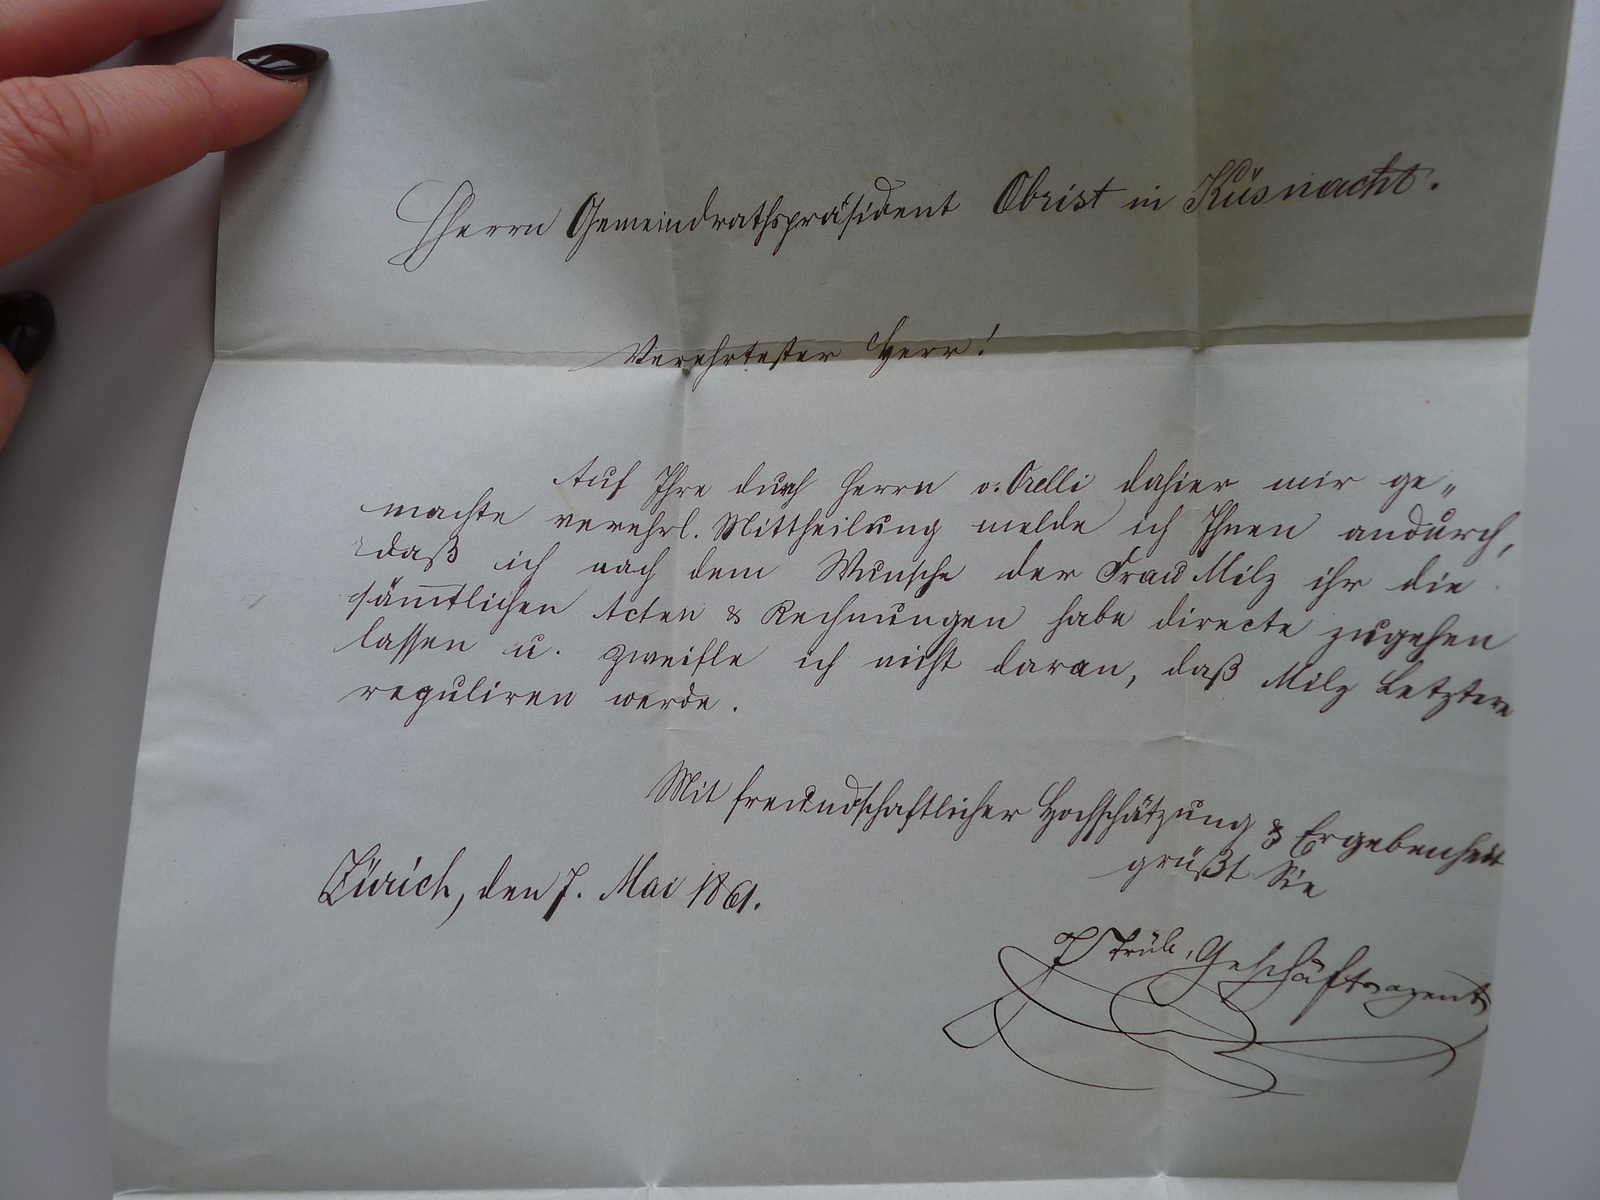 Herrn Gemeindrathspräsident Obrist in Küsnacht.
Verehrtester Herr!
Auf Ihre durch Herrn v. Orelli dahier mir ge„
machte verehrl. Mittheilung melde ich Ihnen andurch,
daß ich nach dem Wunsche der Frau Milz ihr die
sämtlichen Acten & Rechnungen habe directe zugehen
lassen u. zweifle ich nicht daran, daß Milz Letztere
reguliren werde.
Mit freundschaftlicher Hochschätzung & Ergebenheit
grüßt Sie
Zürich, den 7. Mai 1861.
J Trüb, Geschäftsagent